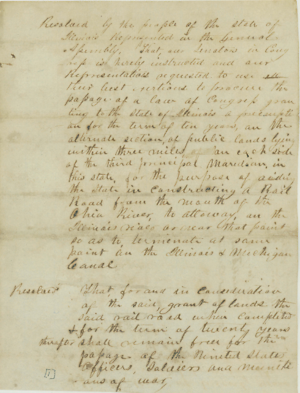 Resolved by the people of the state of
Illinois represented in the General
Assembly, That our Senators in Cong
ress is hereby instructed and our
Representatives requested to use
their best exertions to procure the
passage of a law of Congress gran
ting to the state of Illinois a
for the term of ten years, on the
alternate section, of public lands lying
within three miles on each side
of the third principal Maredian, in
this state, for the purpose of aiding
the State in constructing a Rail
Road from the mouth of the
Ohio River, to attoway, on the
Illinois river or near that point
so as to terminate at some
point on the Illinois & Michigan
Canal
Resolved That for and in consideration
of the said grant of lands the
said rail road when completed
& for the term of twenty years
shall remain free for the
passage of the United States
officers, Soldiers and
of war
[1]